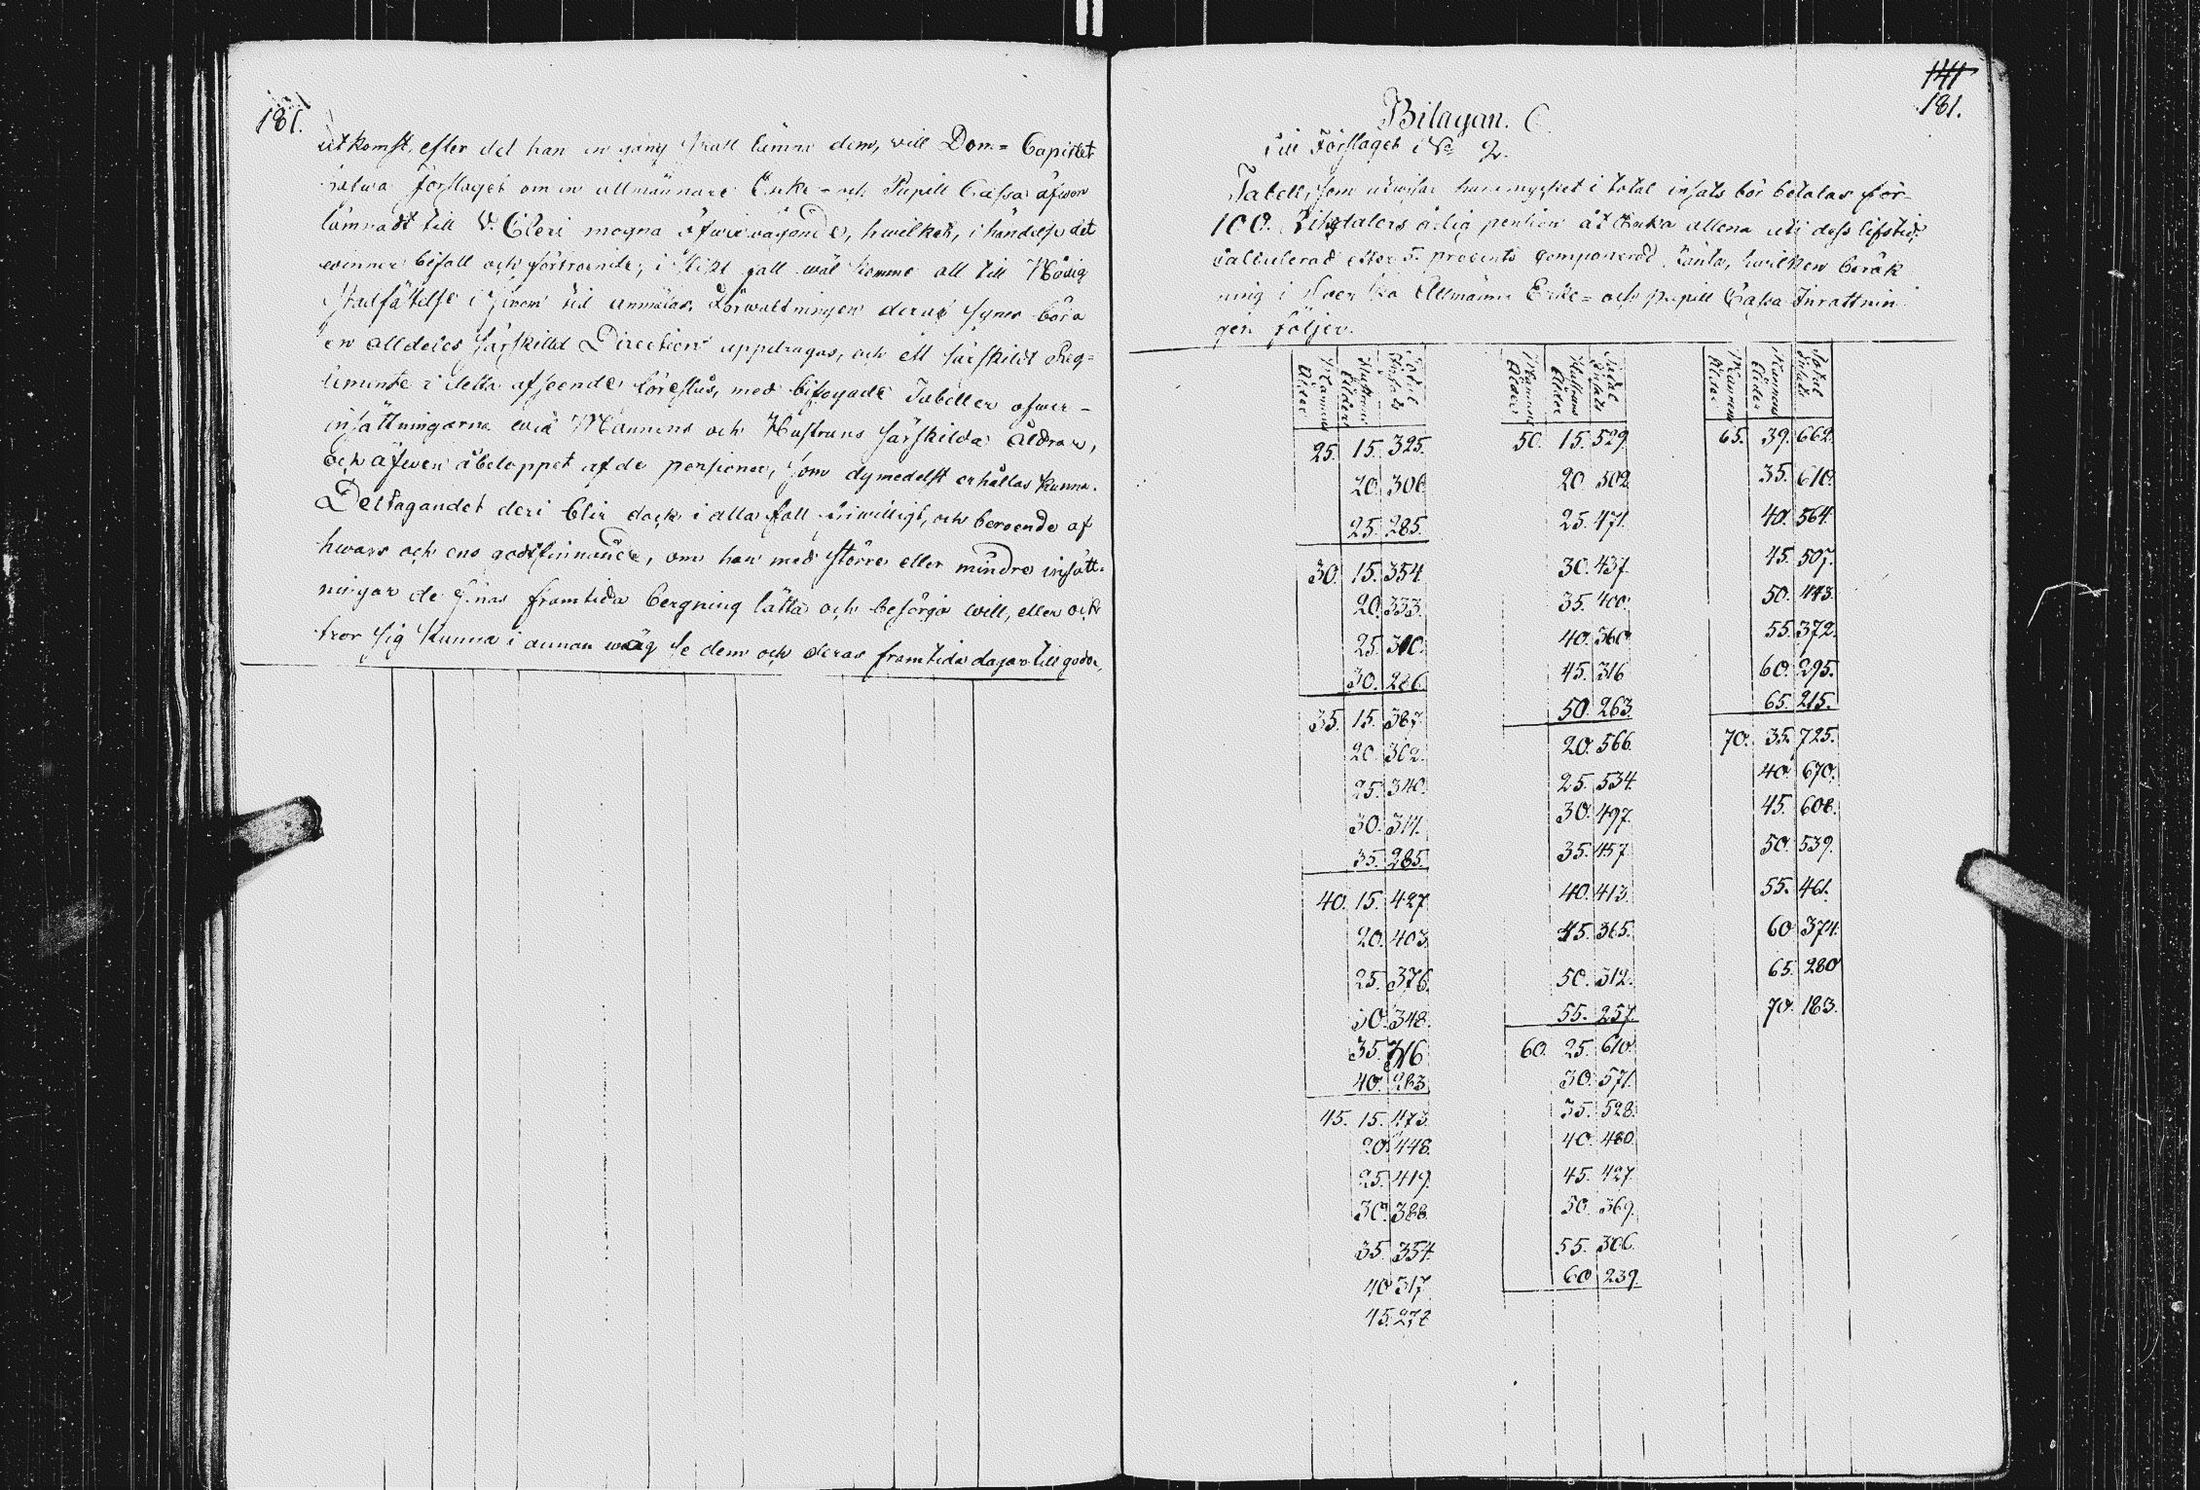 181.
utkomst, efter det han en gång skall lämna dem, will Dom=Capitlet
hafwa förslaget om en allmännare Enke- och Pupill Cassa äfwen
lämnadt till V. Cleri mogna öfwervägande, hwilket, i händelse det
winner bifall och förtroende, i slikt fall wäl komme att till Nådig
Stadfästelse i sinom tid anmälas. Förwaltningen deraf synes böra
en alldeles särskilld Direction uppdragas, och ett särskildt Reg=
lemente i detta afseende föreslås, med bifogade Tabeller öfwer
insättningarna wid Mannens och Hustruns särskilda åldrar,
och äfwen åbeloppet af de pensioner, som dymedelst erhållas kunna.
Deltagandet deri blir dock i alla fall friwilligt, och beroende af
hwars och ens godtfinnande, om han med större eller mindre insätt=
ningar de Sinas framtida bergning lätta och besörja will, eller ock
tror sig kunna i annan wäg se dem och deras framtida dagar till godo.
141
181.
Bilagan. C.
till Förslaget No 2.
Tabell, som utwisar huru mycket i total insats bör betalas för
100. Riksdalers årlig pension åt Enka allena uti dess lifstid,
calculerad efter 5. procents componerad ränta, hwilken beräk
ning i Swenska Allmänna Enke= och pupill Cassa Inrättnin
gen följer.
Mannens Ålder Hustruns Ålder Total Insats
25. 15. 325.
20. 306.
25. 285.
30. 15. 354.
20. 333.
25. 310.
30. 286.
35. 15. 387.
20. 362.
25. 340.
30. 314.
35. 285.
40. 15. 427
20. 403.
25. 376.
30. 348.
35. 316
40. 283
45. 15. 473.
20. 448.
25. 419.
30. 388.
35. 354.
40 317
45. 278
Mannens Ålder Hustruns Ålder Total Insats
50. 15. 529.
20. 502.
25. 471.
30. 437.
35. 400.
40. 360.
45. 316
50. 263.
20. 566.
25. 534.
30. 497.
35. 457.
40. 413.
45. 365.
50. 312.
55. 257.
60. 25. 610.
30. 571.
35. 528.
40. 480.
45. 427.
50. 369.
55. 306.
60 239.
Mannens Ålder Mannens Ålder Total Insats
65. 39. 662.
35. 610.
40. 564.
45. 507.
50. 443.
55. 372.
60. 295.
65. 215.
70. 35. 725.
40. 670.
45. 608.
50. 539.
55. 461.
60 374.
65. 280
70. 183.